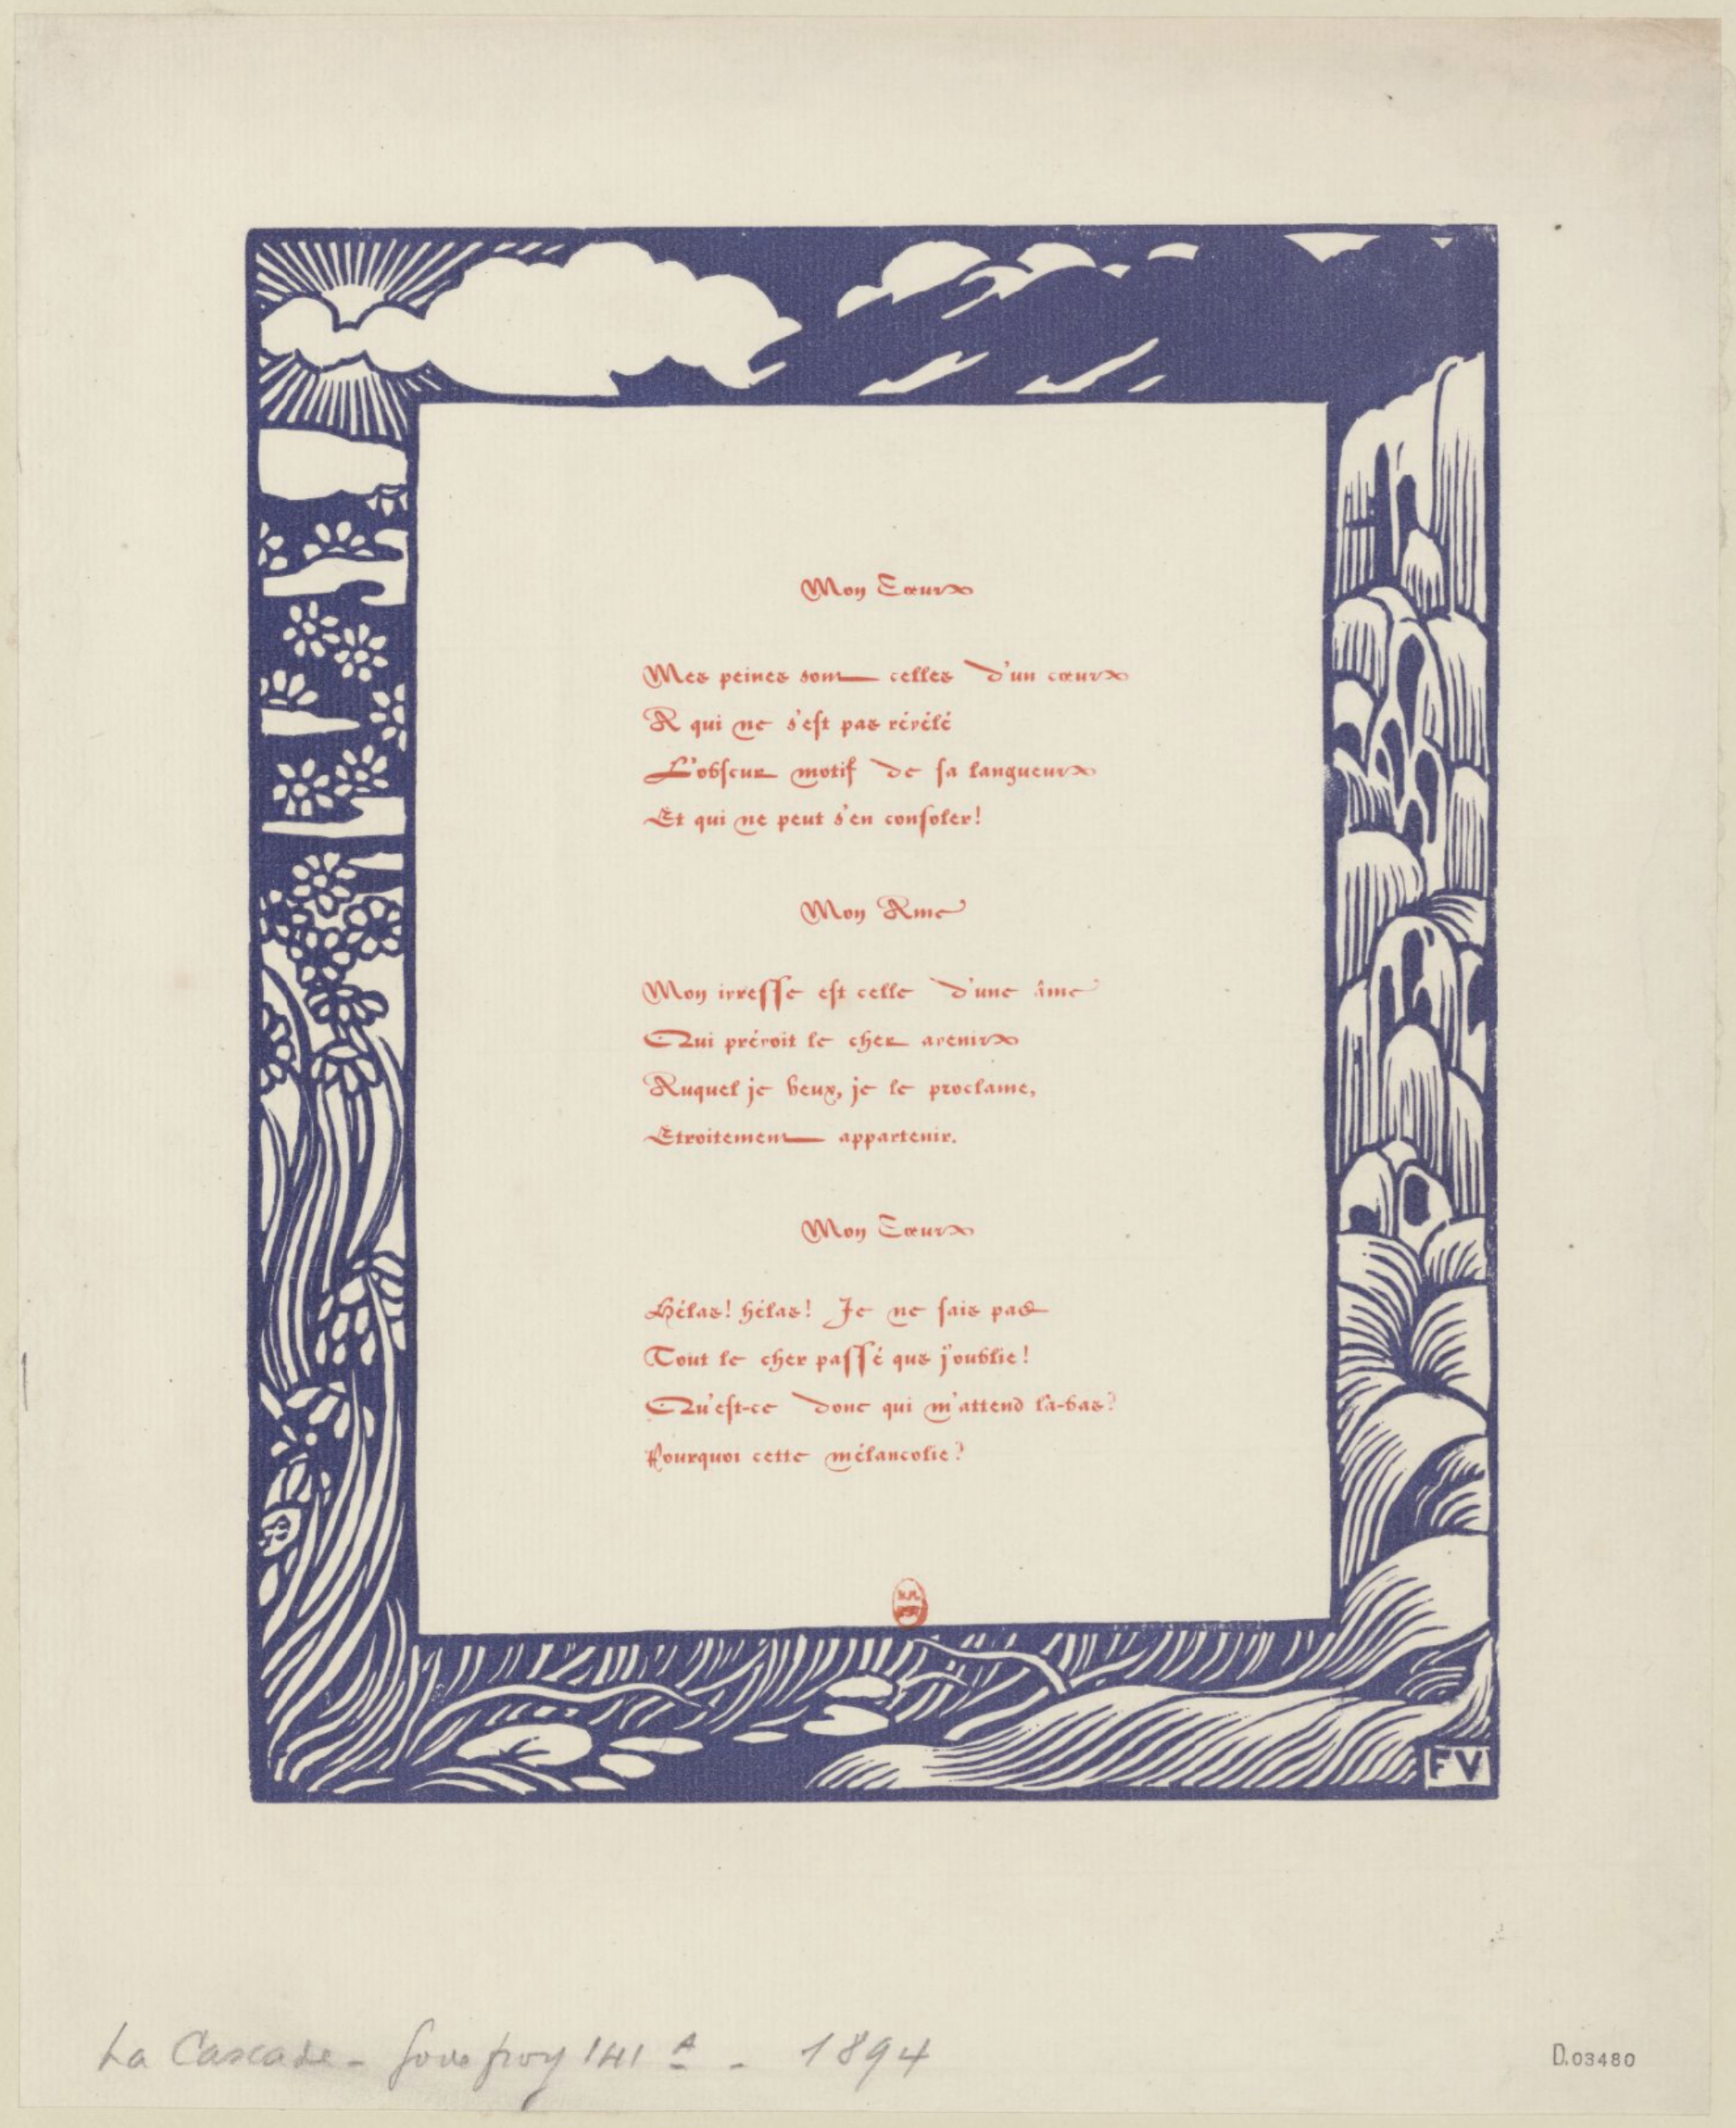 Mon Cœur
Mes peines sont celles d'un cœur
A qui ne s'est pas révélé
L'obscur motif de sa langueur
Et qui ne peut s'en consoler!
Mon Ame
Mon ivresse est celle d'une âme
Qui prévoit le cher avenir
Auquel je veux, je le proclame,
Etroitement appartenir.
Mon Cœur
Hélas! hélas! Je ne sais pas
Tout le cher passé que j'oublie!
Qu'est-ce donc qui m'attend là-bas?
Pourquoi cette mélancolie?
FV
La Cascade - Godefroy 141 A - 1894
D.03480